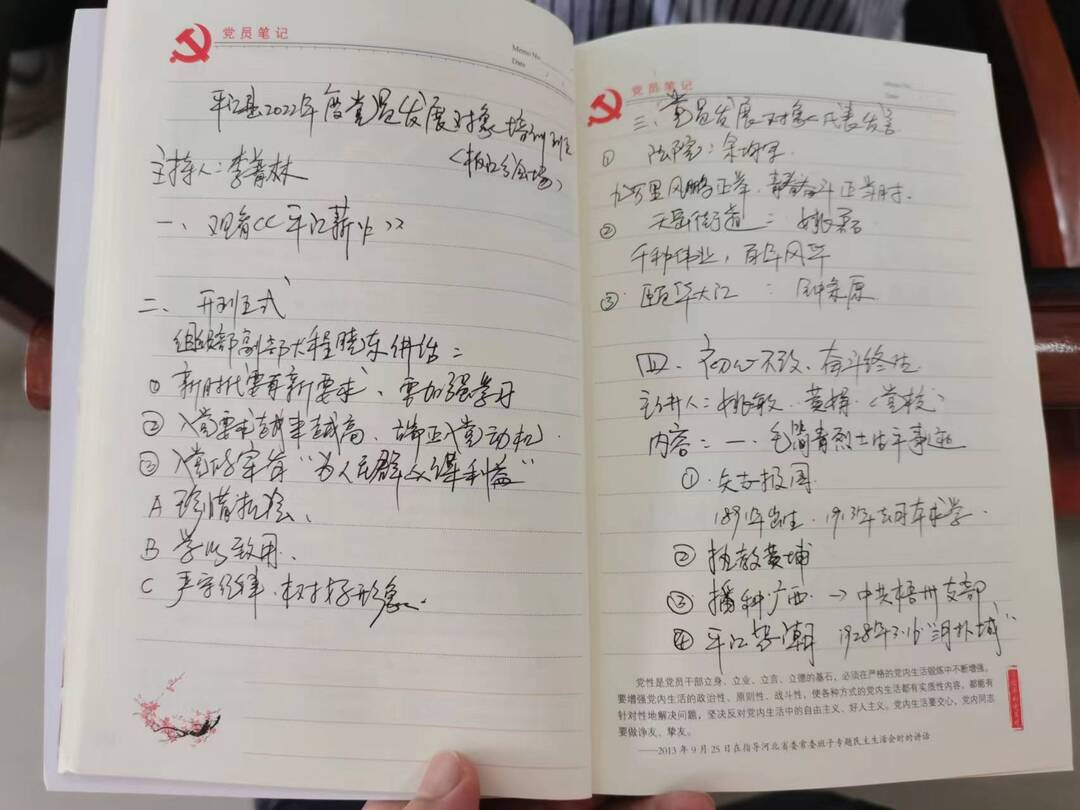 党员笔记
Memo No.
Date
平江县2022年度党员发展对象培训班
(板江分会场)
主持人:李
一、观看《平江薪火》
二、开班仪式
组织部副部长程晓东讲话:
① 新时代要有新要求、要加强学习
② 入党要求越来越高、端正入党动机.
③ 入党的宗旨“为人民群众谋利益”
A 珍惜机会、
B 学以致用.
C 严守纪律.树好形象.
党员笔记
Memo No.
Date
三、党员发展对象代表发言
① 法院:余
九万里风鹏正举,青春奋斗正当时.
② 天岳街道:姚磊
千秋伟业,百年风华
③ 大江:钟
四、初心不改、奋斗终生
主讲人:姚敏.黄 (党校)
内容:一、毛简青烈士生平事迹
① 矢志报国
1891年出生.1913年去日本求学.
② 执教黄埔
③ 播种广西 → 中共梧州支部
④ 平江 潮 1928年3.16“三月扑城”
党性是党员干部立身、立业、立言、立德的基石,必须在严格的党内生活锻炼中不断增强。
要增强党内生活的政治性、原则性、战斗性,使各种方式的党内生活都有实质性内容,都能有
针对性地解决问题,坚决反对党内生活中的自由主义、好人主义。党内生活要交心,党内同志
要做诤友、挚友。
——2013年9月25日在指导河北省委常委班子专题民主生活会时的讲话